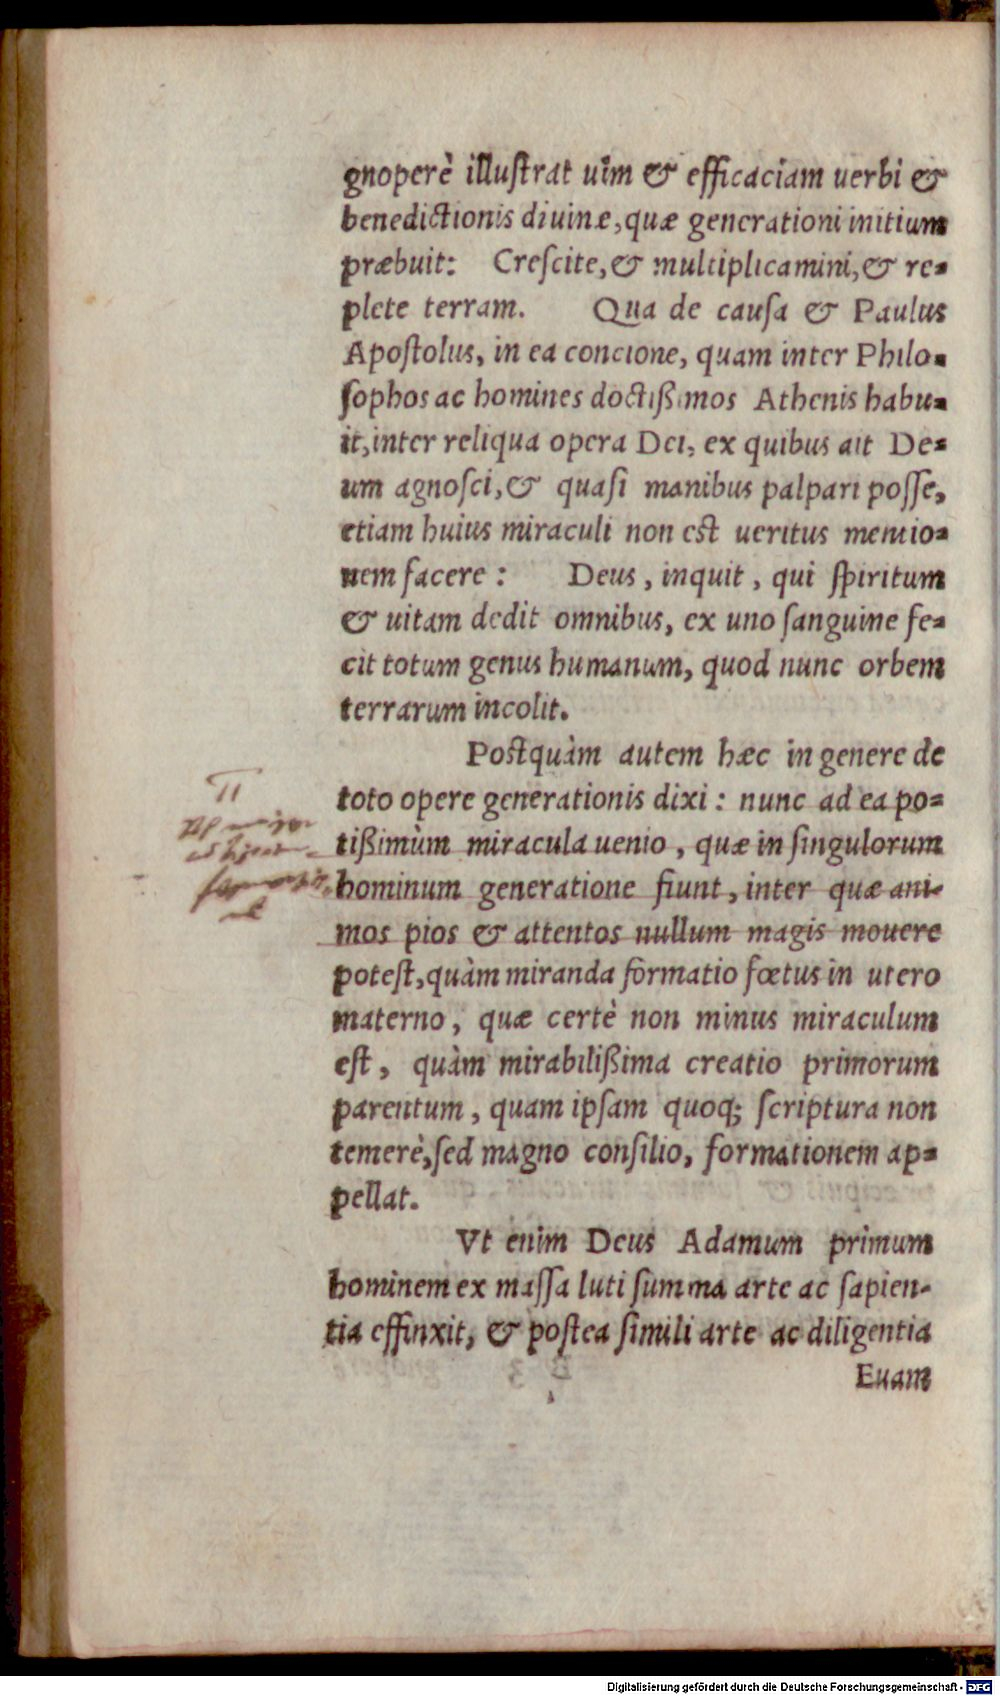 gnoperè illuſtrat uim & efficaciam uerbi &
benedictionis diuinæ, quæ generationi initium
præbuit: Creſcite, & multiplicamini, & re-
plete terram. Qua de cauſa & Paulus
Apoſtolus, in ea concione, quam inter Philo-
ſophos ac homines doctißimos Athenis habu-
it, inter reliqua opera Dei, ex quibus ait De-
um agnoſci, & quaſi manibus palpari poſſe,
etiam huius miraculi non est ueritus mentio-
nem facere: Deus, inquit, qui ſpiritum
& uitam dedit omnibus, ex uno ſanguine fe-
cit totum genus humanum, quod nunc orbem
terrarum incolit.
Postquàm autem hæc in genere de
toto opere generationis dixi: nunc ad ea po-
tißimùm miracula uenio, quæ in ſingulorum
hominum generatione fiunt, inter quæ ani-
mos pios & attentos nullum magis mouere
poteſt, quàm miranda formatio fœtus in utero
materno, quæ certè non minus miraculum
eſt, quàm mirabilißima creatio primorum
parentum, quam ipſam quoq; ſcriptura non
temerè, ſed magno conſilio, formationem ap-
pellat.
Vt enim Deus Adamum primum
hominem ex maſſa luti ſumma arte ac ſapien-
tia effinxit, & poſtea ſimili arte ac diligentia
Euam
II
Digitalisierung gefördert durch die Deutsche Forschungsgemeinschaft - DFG